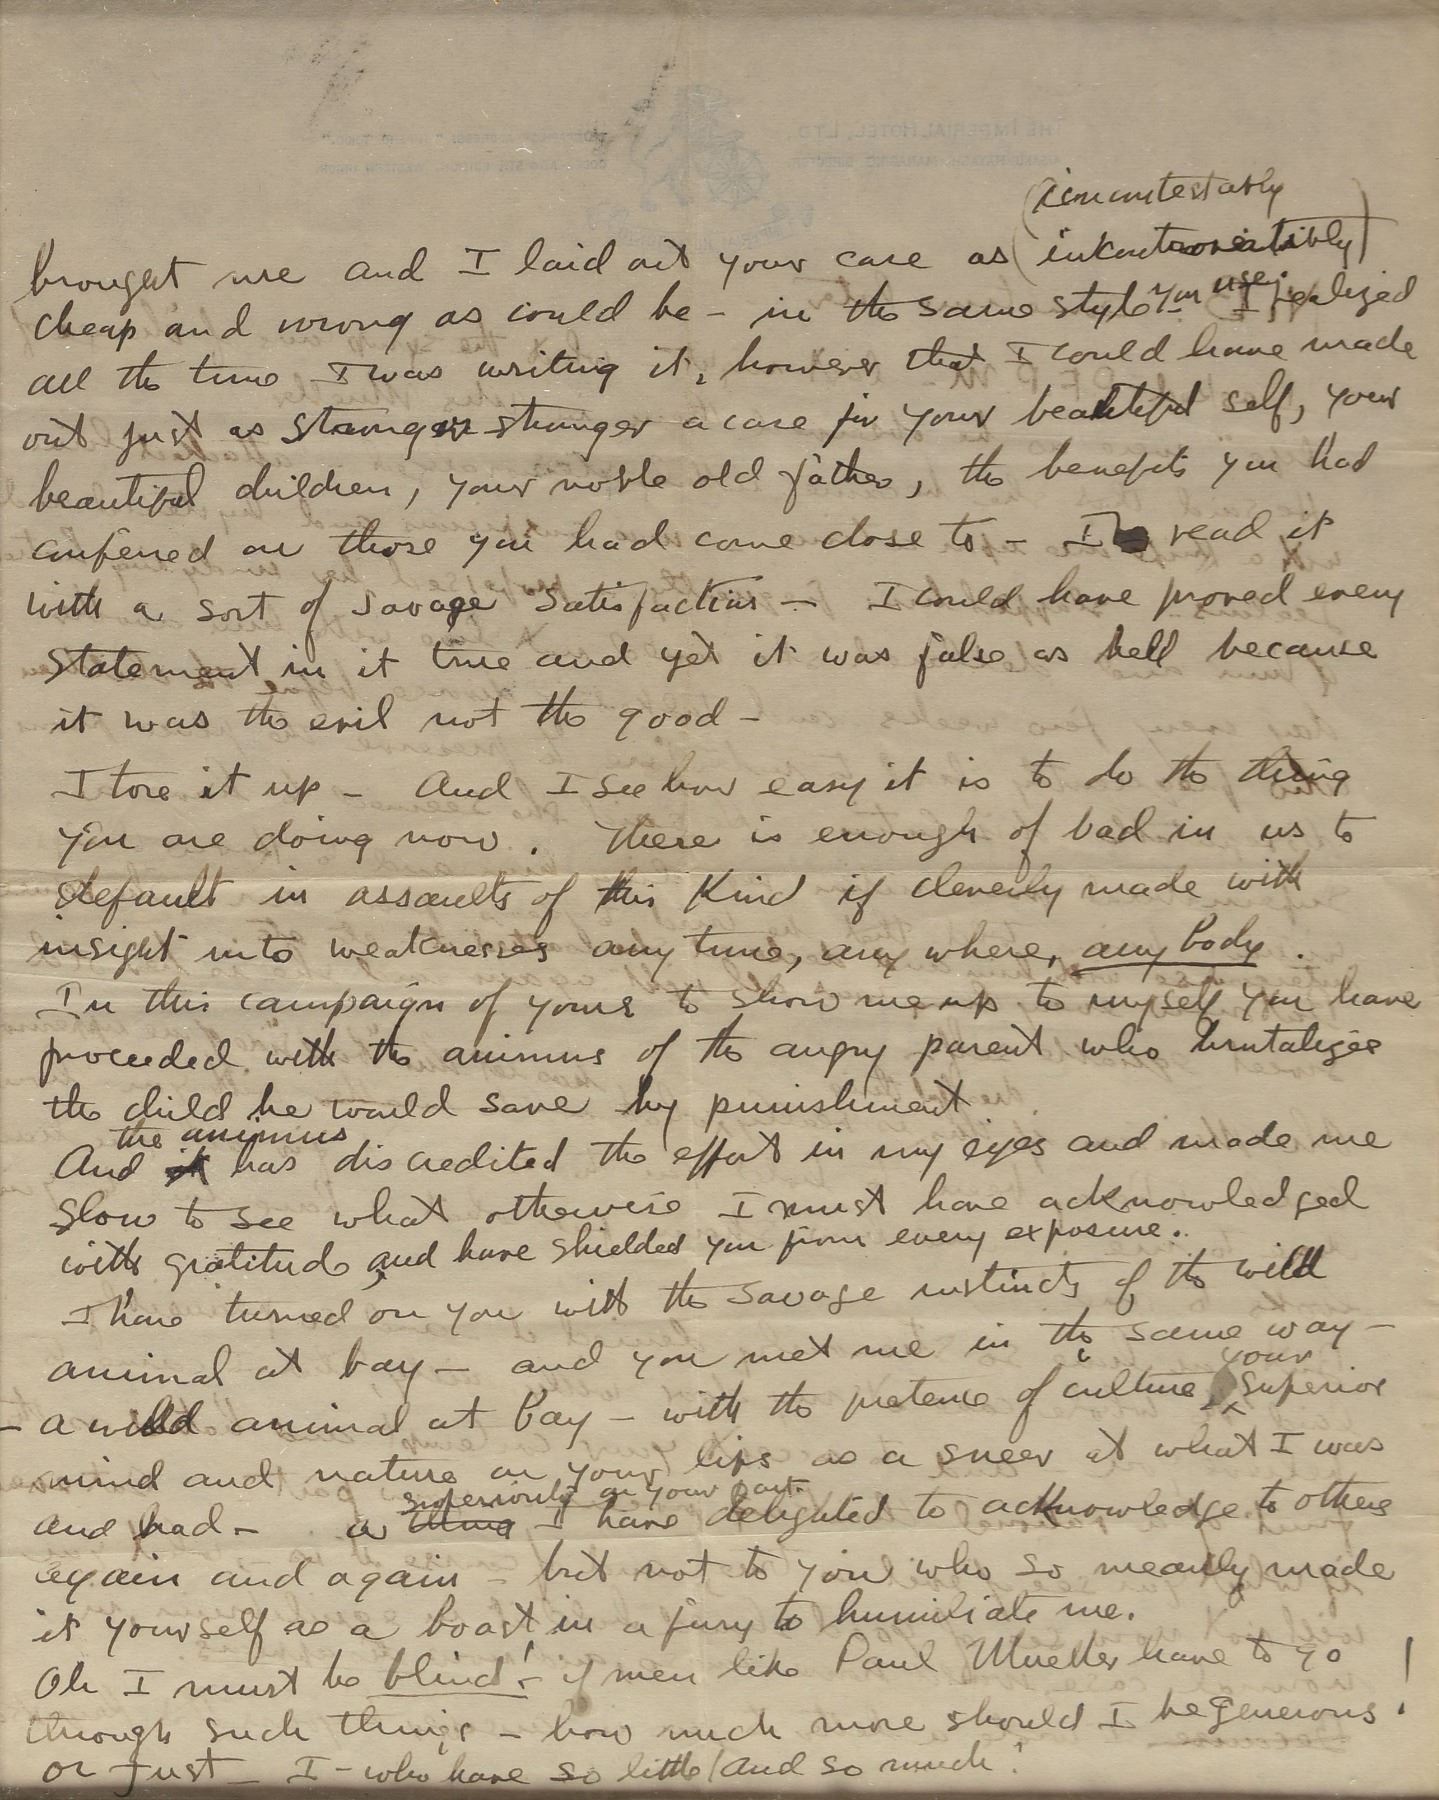 (incontestably
brought me and I laid out your case as (incontrovertibly)
cheap and wrong as could be – in the same style you use. I realized
all the time I was writing it, however that I could have made
out just as stronger stronger a case for your beautiful self, your
beautiful children, your noble old father, the benefits you had
conferred on those you had come close to – I read it
with a sort of savage satisfaction – I could have proved every
statement in it true and yet it was false as hell because
it was the evil not the good –
I tore it up – And I see how easy it is to do the thing
you are doing now. There is enough of bad in us to
default in assaults of this kind if cleverly made with
insight into weaknesses any time, any where, any body.
In this campaign of yours to show me up to myself you have
proceeded with the animus of the angry parent who brutalizes
the child he would save by punishment
the animus
And it has discredited the effort in my eyes and made me
slow to see what otherwise I must have acknowledged
with gratitude, and have shielded you from every exposure.
I have turned on you with the savage instincts of the wild
animal at bay – and you met me in the same way –
your
– a wild animal at bay – with the pretence of culture, superior
mind and nature on your lips as a sneer at what I was
superiority on your part
and had – a thing I have delighted to acknowledge to others
again and again – but not to you who so meanly made
it yourself as a boast in a fury to humiliate me.
Oh I must be blind! – if men like Paul Mueller have to go
through such things – how much more should I be generous!
or just – I – who have so little / and so much!